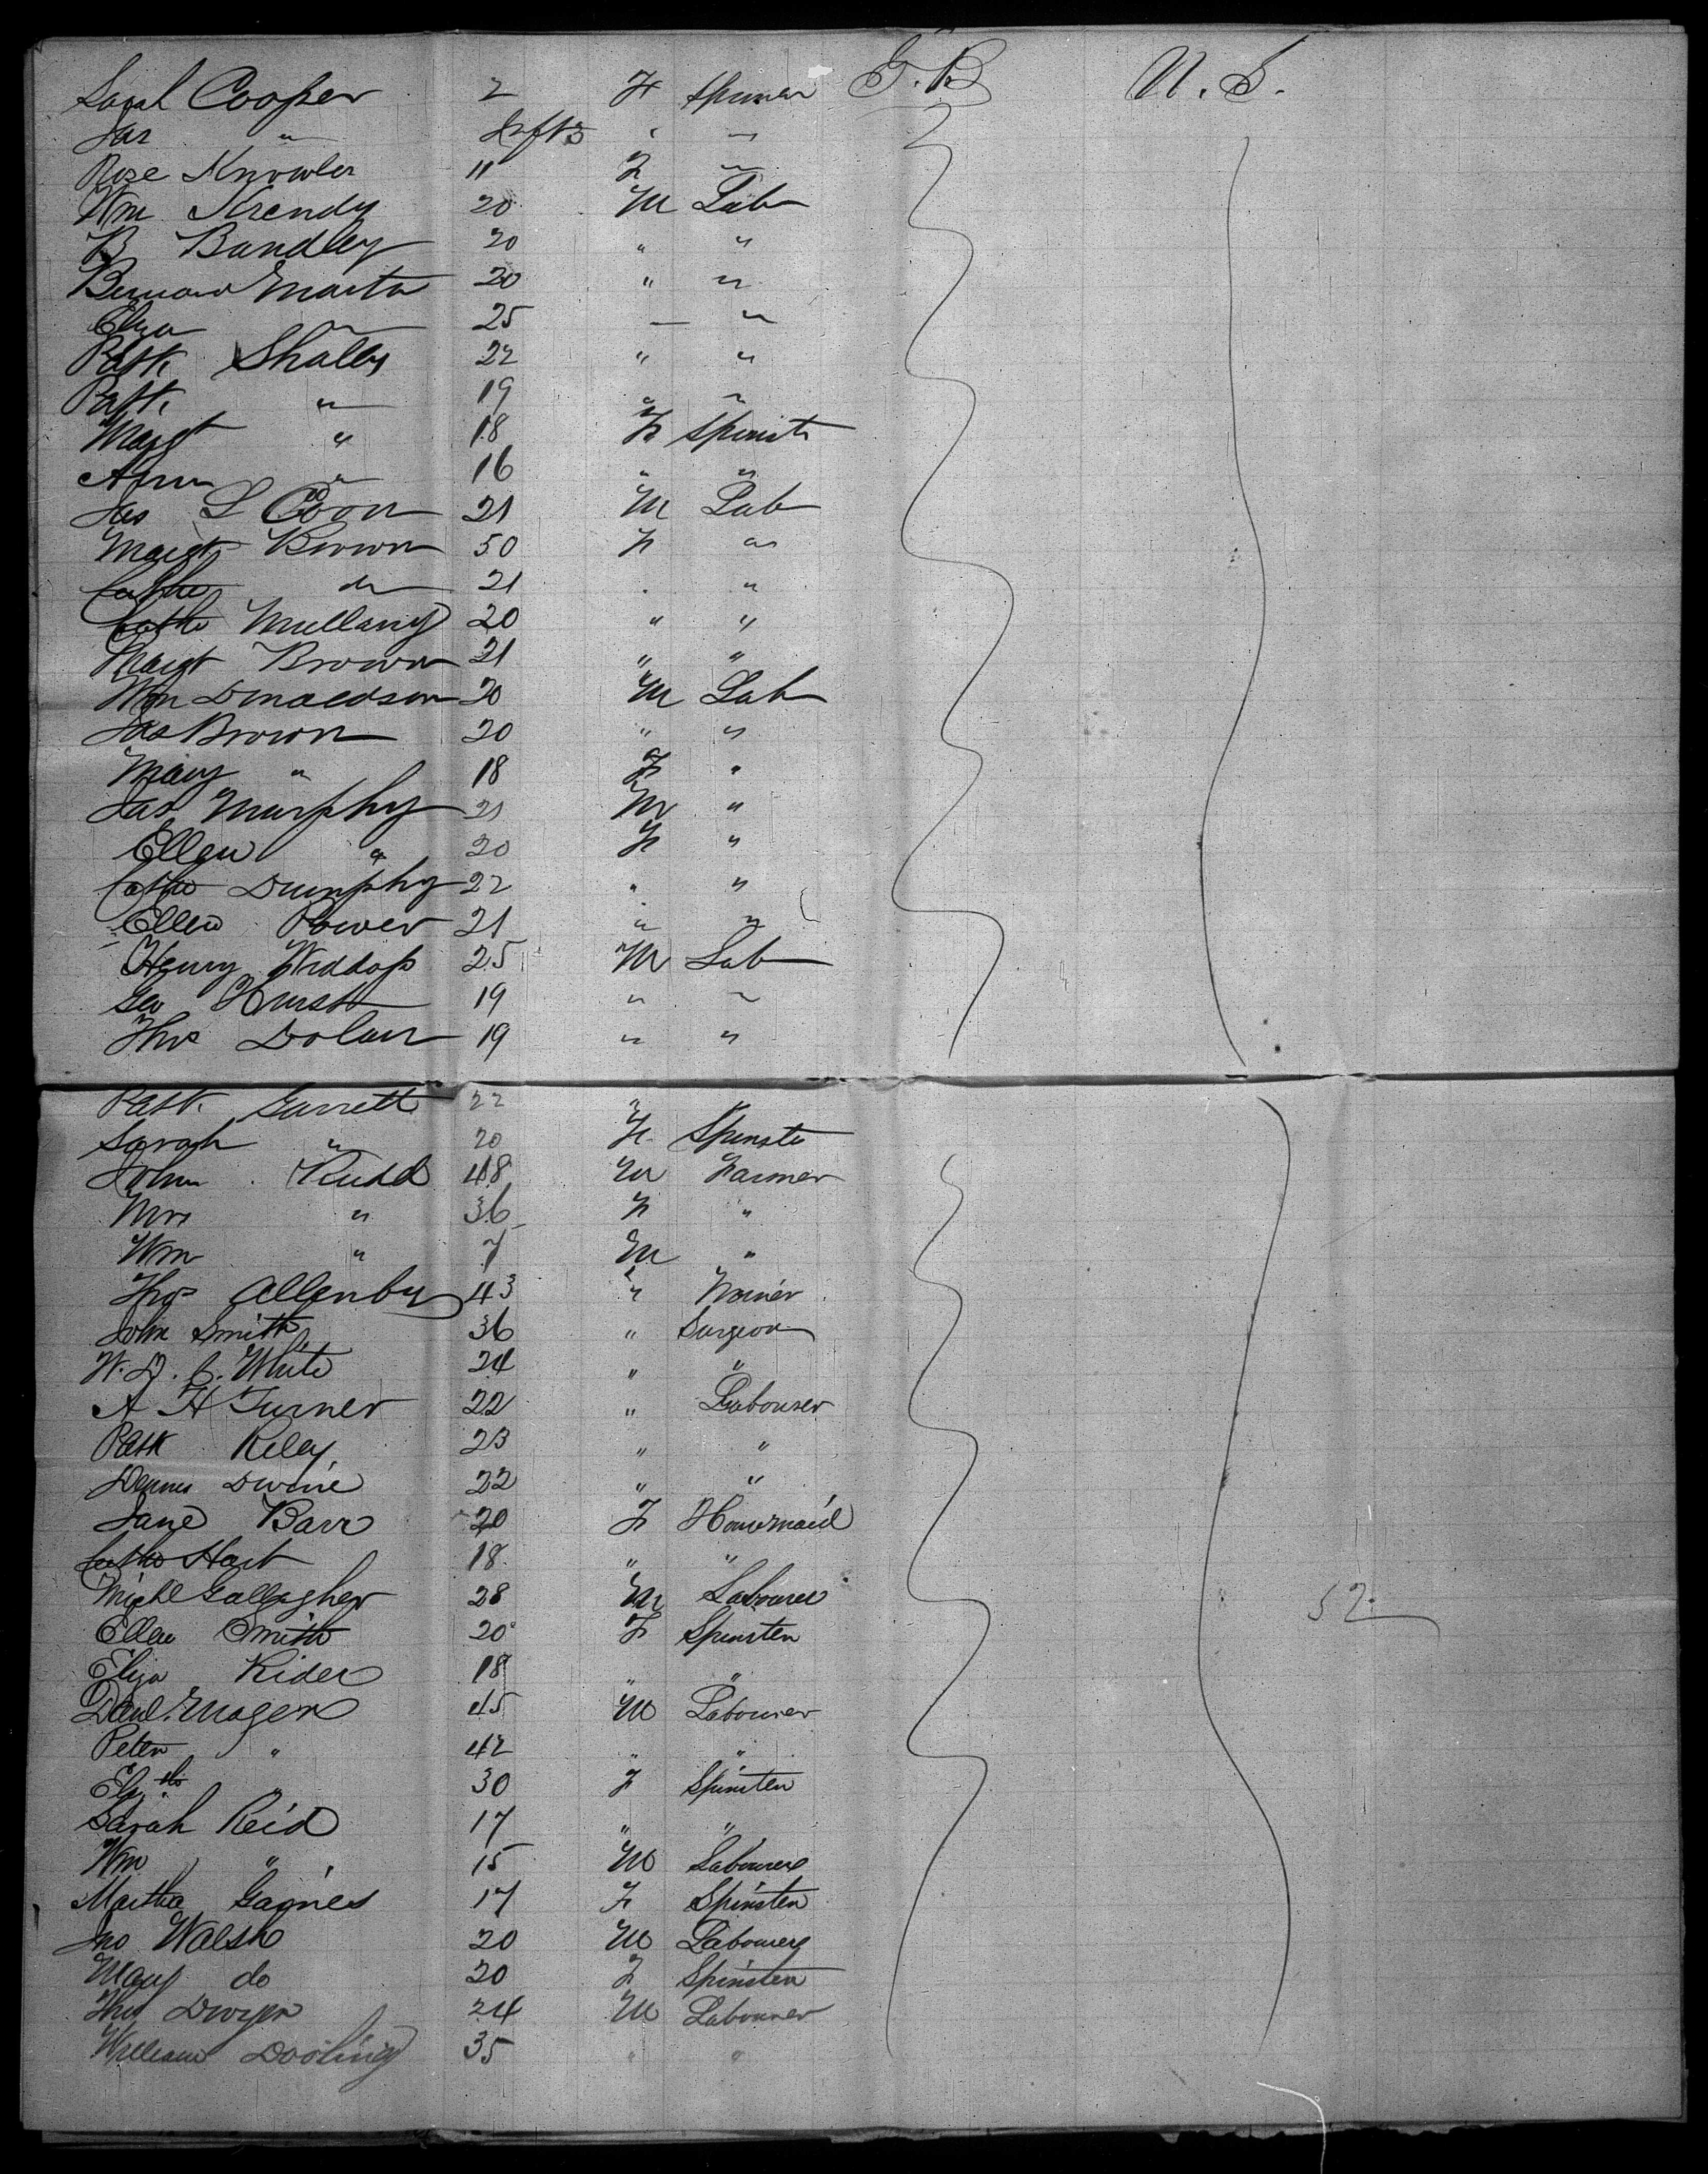 Sarah Cooper 2 F Spinster G.B U.S.
Jas " Infts " "
Rose Knowler 11 F "
Wm Krendy 20 M Lab
B Bandley 20 " "
Bernard Marta 20 " "
Eliza " 25 — "
Patk Shalley 22 " "
Patk. " 19 " "
Margt " 18 F Spinst
Ann " 16 " "
Jas L Coon 21 M Lab
Margt Brown 50 F "
Cathe do 21 " "
Cathe Mullany 20 " "
Margt Brown 21 " "
Wm Donaldson 20 M Lab
Jas Brown 20 " "
Mary " 18 F "
Jas Murphy 21 M "
Ellen " 20 F "
Cathe Dumphy 22 " "
Ellen Power 21 " "
Henry Widdop 25 M Lab
Geo Hurst 19 " "
Thos Dolan 19 " "
Patk. Garrett 22
Sarah " 20 F. Spinster
John Rudd 48 M Farmer
Mrs " 36 F "
Wm " 7 M "
Thos Allenby 43 "
John Smith 36 " Surgeon
W. D. C. White 24 " "
A H Turner 22 " Labourer
Patk Riley 23 " "
Dennis Dwine 22 " "
Jane Barr 20 F Housemaid
Cathe Hart 18 " "
Michl Gallagher 28 M Labourer
Ellen Smith 20 F Spinster
Eliza Rider 18 " "
Danl. Mager 45 M Labourer 52
Peter " 42 " "
Elizth " 30 F Spinster
Sarah Reid 17 " "
Wm " 15 M Labourer
Martha Gagnes 17 F Spinster
Jno Walsh 20 M Labourer
Mary do 20 F Spinster
Thos Dwyer 24 M Labourer
William Dooling 35 " "